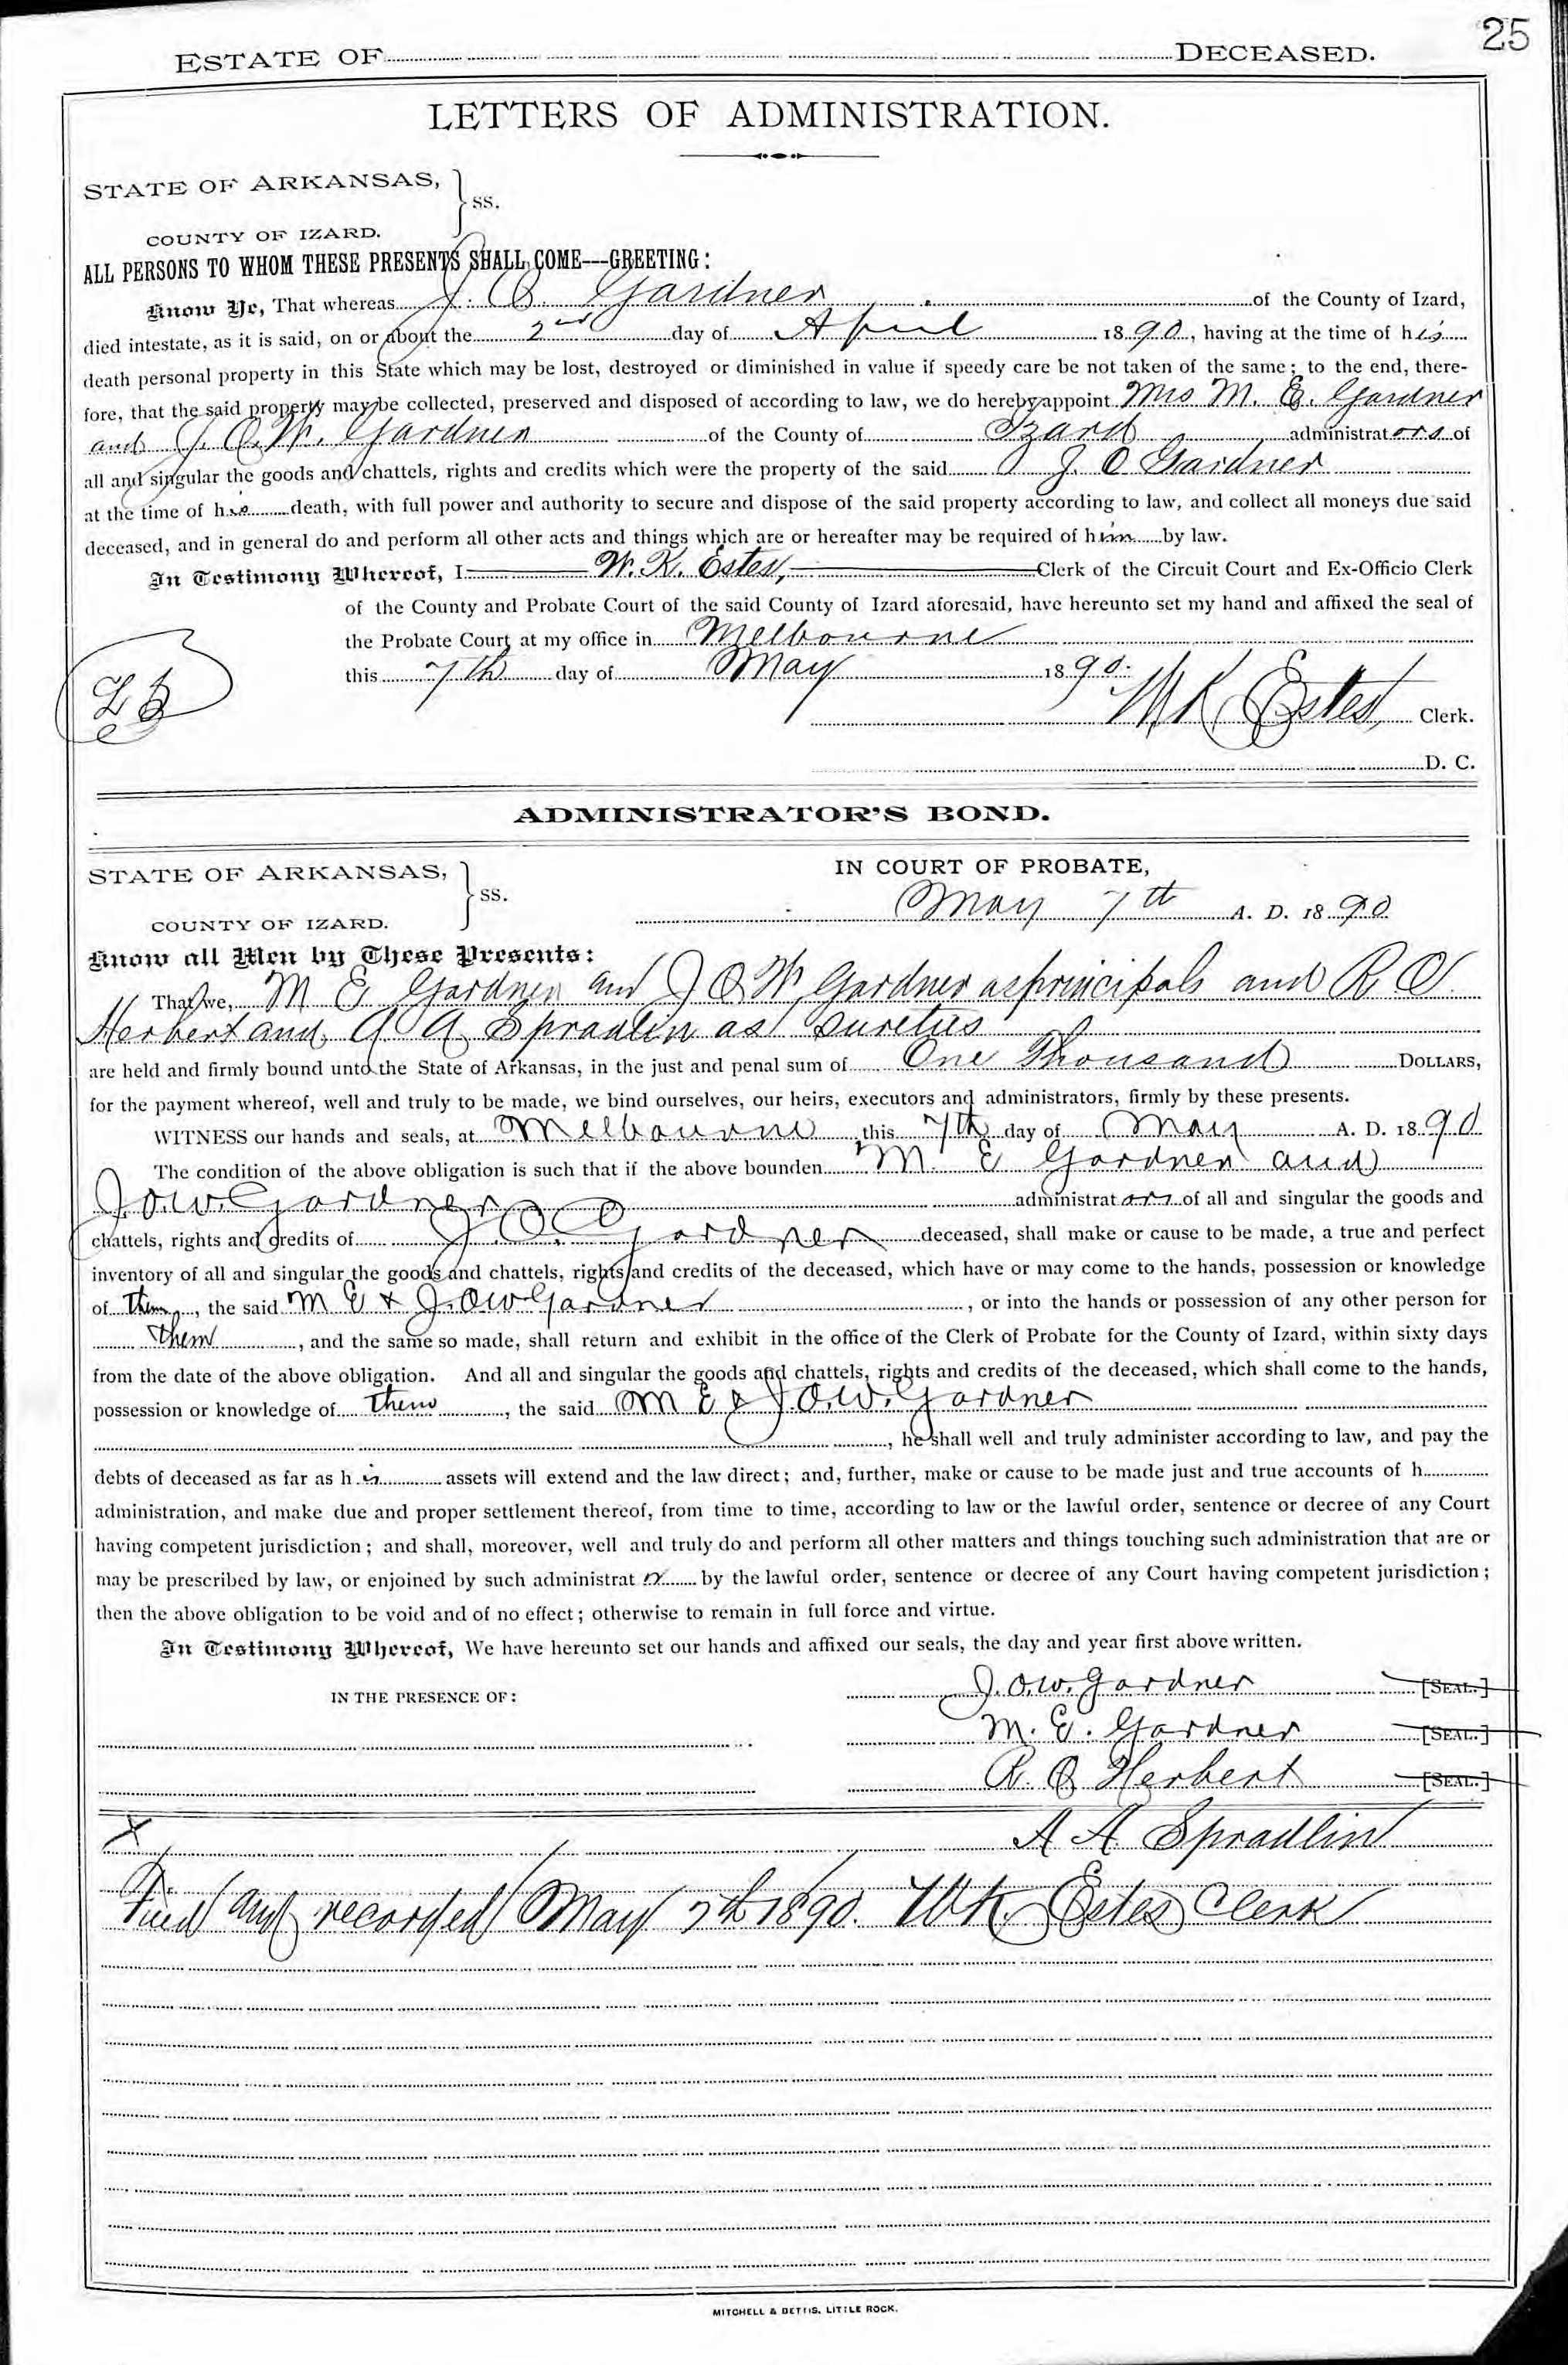 25
ESTATE OF DECEASED.
LETTERS OF ADMINISTRATION.
STATE OF ARKANSAS, } ss.
COUNTY OF IZARD.
ALL PERSONS TO WHOM THESE PRESENTS SHALL COME---GREETING:
Know Ye, That whereas J. O. Gardner of the County of Izard,
died intestate, as it is said, on or about the 2nd day of April 1890, having at the time of his
death personal property in this State which may be lost, destroyed or diminished in value if speedy care be not taken of the same; to the end, there-
fore, that the said property may be collected, preserved and disposed of according to law, we do hereby appoint Mrs M. E. Gardner
and J. O. W. Gardner of the County of Izard administrators of
all and singular the goods and chattels, rights and credits which were the property of the said J. O Gardner
at the time of his death, with full power and authority to secure and dispose of the said property according to law, and collect all moneys due said
deceased, and in general do and perform all other acts and things which are or hereafter may be required of him by law.
In Testimony Whereof, I W. K. Estes, Clerk of the Circuit Court and Ex-Officio Clerk
of the County and Probate Court of the said County of Izard aforesaid, have hereunto set my hand and affixed the seal of
the Probate Court at my office in Melbourne
this 7th day of May 1890.
W K Estes, Clerk.
D. C.
ADMINISTRATOR'S BOND.
STATE OF ARKANSAS, } ss.
COUNTY OF IZARD.
IN COURT OF PROBATE,
May 7th A. D. 1890
Know all Men by These Presents:
That we, M E Gardner and J O W Gardner as principals and R. O.
Herbert and A A Spradlin as sureties
are held and firmly bound unto the State of Arkansas, in the just and penal sum of One Thousand DOLLARS,
for the payment whereof, well and truly to be made, we bind ourselves, our heirs, executors and administrators, firmly by these presents.
WITNESS our hands and seals, at Melbourne this 7th day of May A. D. 1890
The condition of the above obligation is such that if the above bounden M. E Gardner and
J.O.W. Gardner administrators of all and singular the goods and
chattels, rights and credits of J. O. Gardner deceased, shall make or cause to be made, a true and perfect
inventory of all and singular the goods and chattels, rights and credits of the deceased, which have or may come to the hands, possession or knowledge
of them, the said M E & J. O W Gardner, or into the hands or possession of any other person for
them, and the same so made, shall return and exhibit in the office of the Clerk of Probate for the County of Izard, within sixty days
from the date of the above obligation. And all and singular the goods and chattels, rights and credits of the deceased, which shall come to the hands,
possession or knowledge of them, the said M E & J.O.W. Gardner
, he shall well and truly administer according to law, and pay the
debts of deceased as far as his assets will extend and the law direct; and, further, make or cause to be made just and true accounts of h
administration, and make due and proper settlement thereof, from time to time, according to law or the lawful order, sentence or decree of any Court
having competent jurisdiction; and shall, moreover, well and truly do and perform all other matters and things touching such administration that are or
may be prescribed by law, or enjoined by such administrat by the lawful order, sentence or decree of any Court having competent jurisdiction;
then the above obligation to be void and of no effect; otherwise to remain in full force and virtue.
In Testimony Whereof, We have hereunto set our hands and affixed our seals, the day and year first above written.
IN THE PRESENCE OF:
J.O.W. Gardner [SEAL.]
M. E. Gardner [SEAL.]
R. O Herbert [SEAL.]
A A Spradlin
Filed and recorded May 7th 1890. W K Estes Clerk
MITCHELL & BETTIS, LITTLE ROCK.